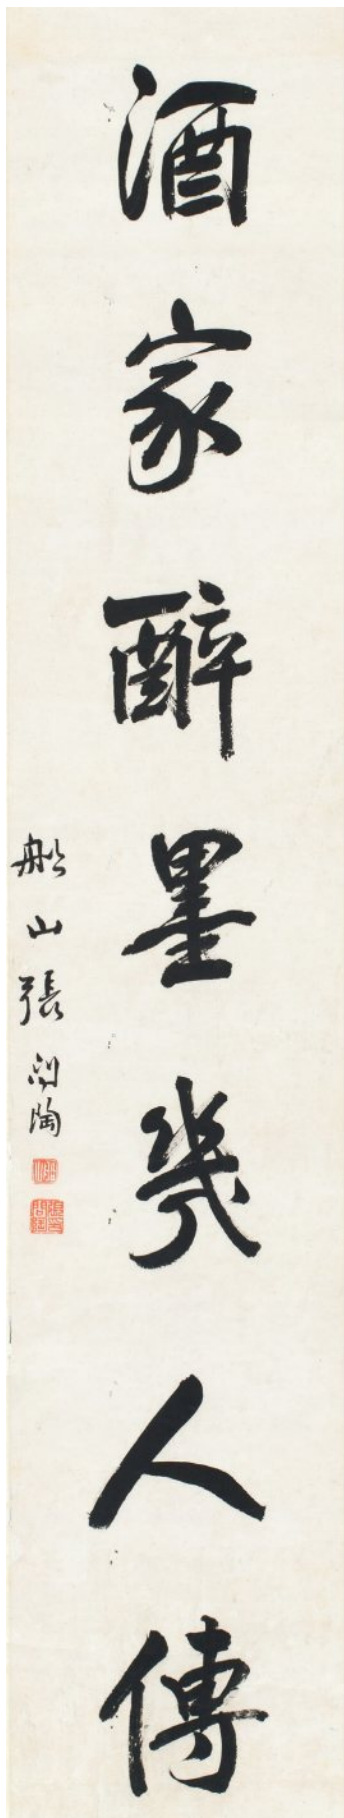 酒家醉墨幾人傳
船山張問陶